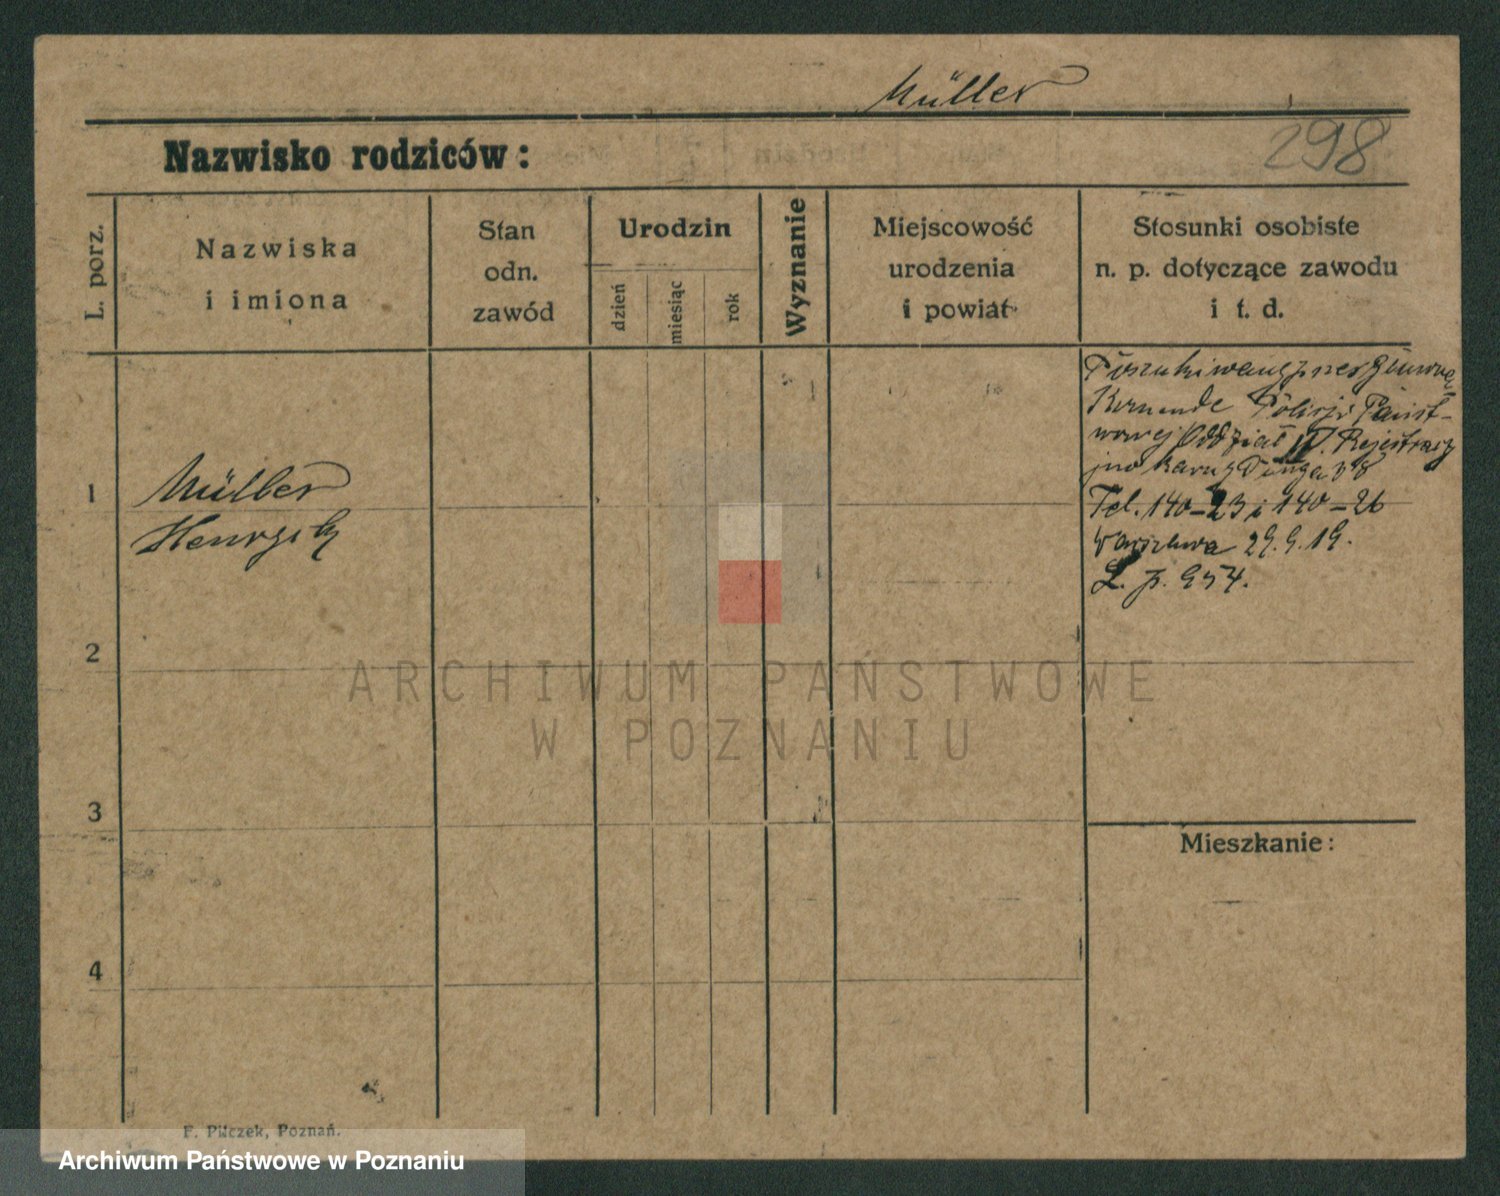 Müller
Nazwisko rodziców:
298
L. porz.
Nazwiska
i imiona
Stan
odn.
zawód
Urodzin
dzień
miesiąc
rok
Wyznanie
Miejscowość
urodzenia
i powiat
Stosunki osobiste
n. p. dotyczące zawodu
i t. d.
Poszukiwany przez Główną
Komende Policji Państ-
wowej Oddział IV. Rejestracyj
Długa 38
Tel. 140-23 i 140-26
Warszawa 29.9.19.
L. p. 954.
1
Müller
Henryk
2
3
4
Mieszkanie:
F. Pilczek, Poznań.
ARCHIWUM PAŃSTWOWE
W POZNANIU
Archiwum Państwowe w Poznaniu